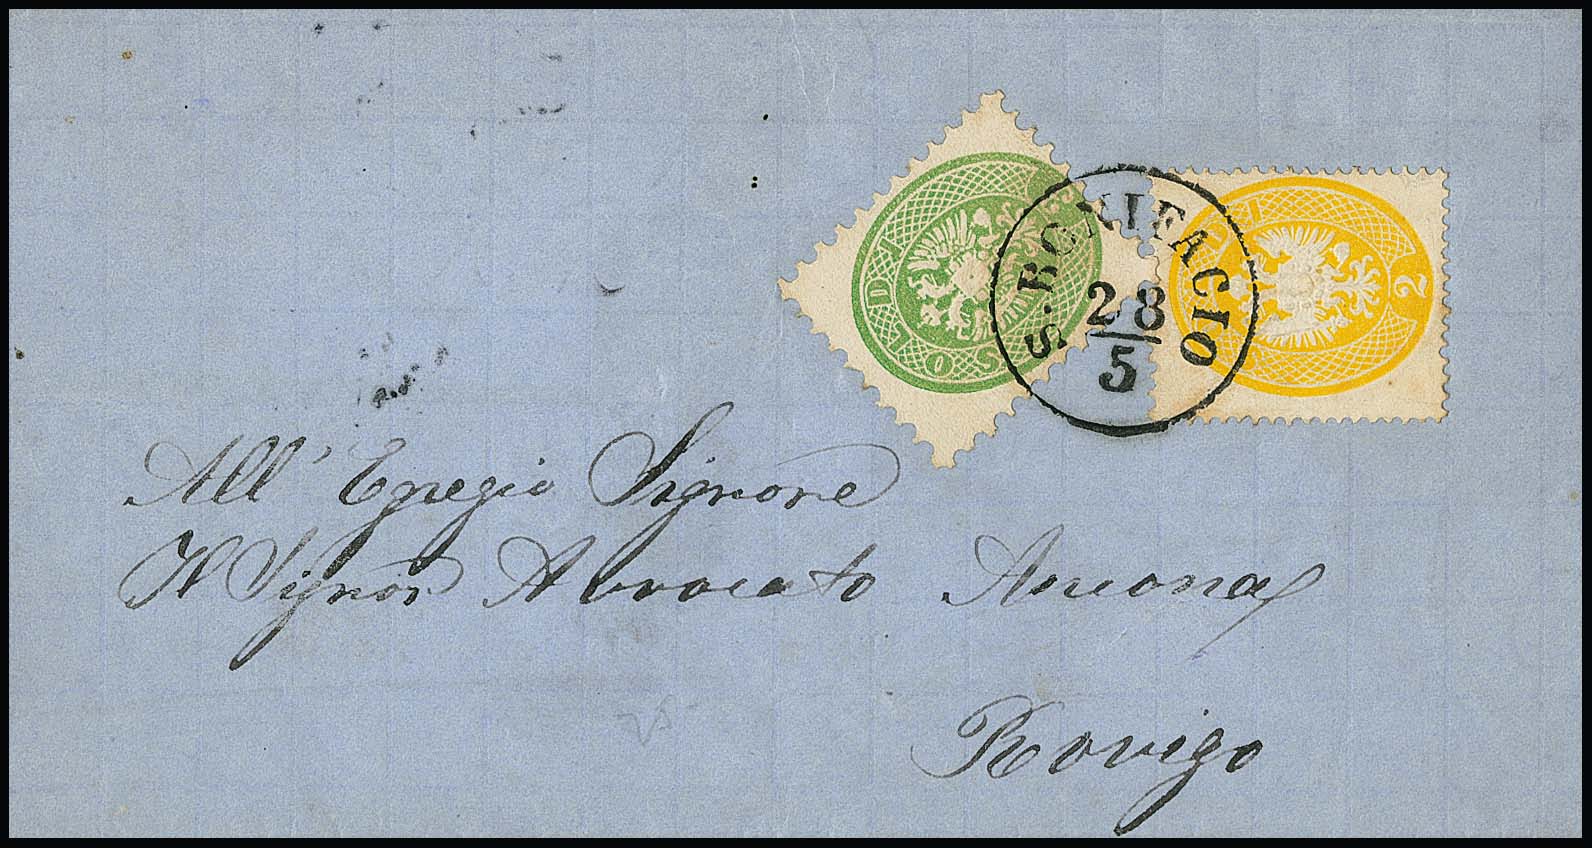 S. BONIFACIO
28
5
SOLDI
2
All' Egregio Signore
Il Signor Avvocato Ancona
Rovigo